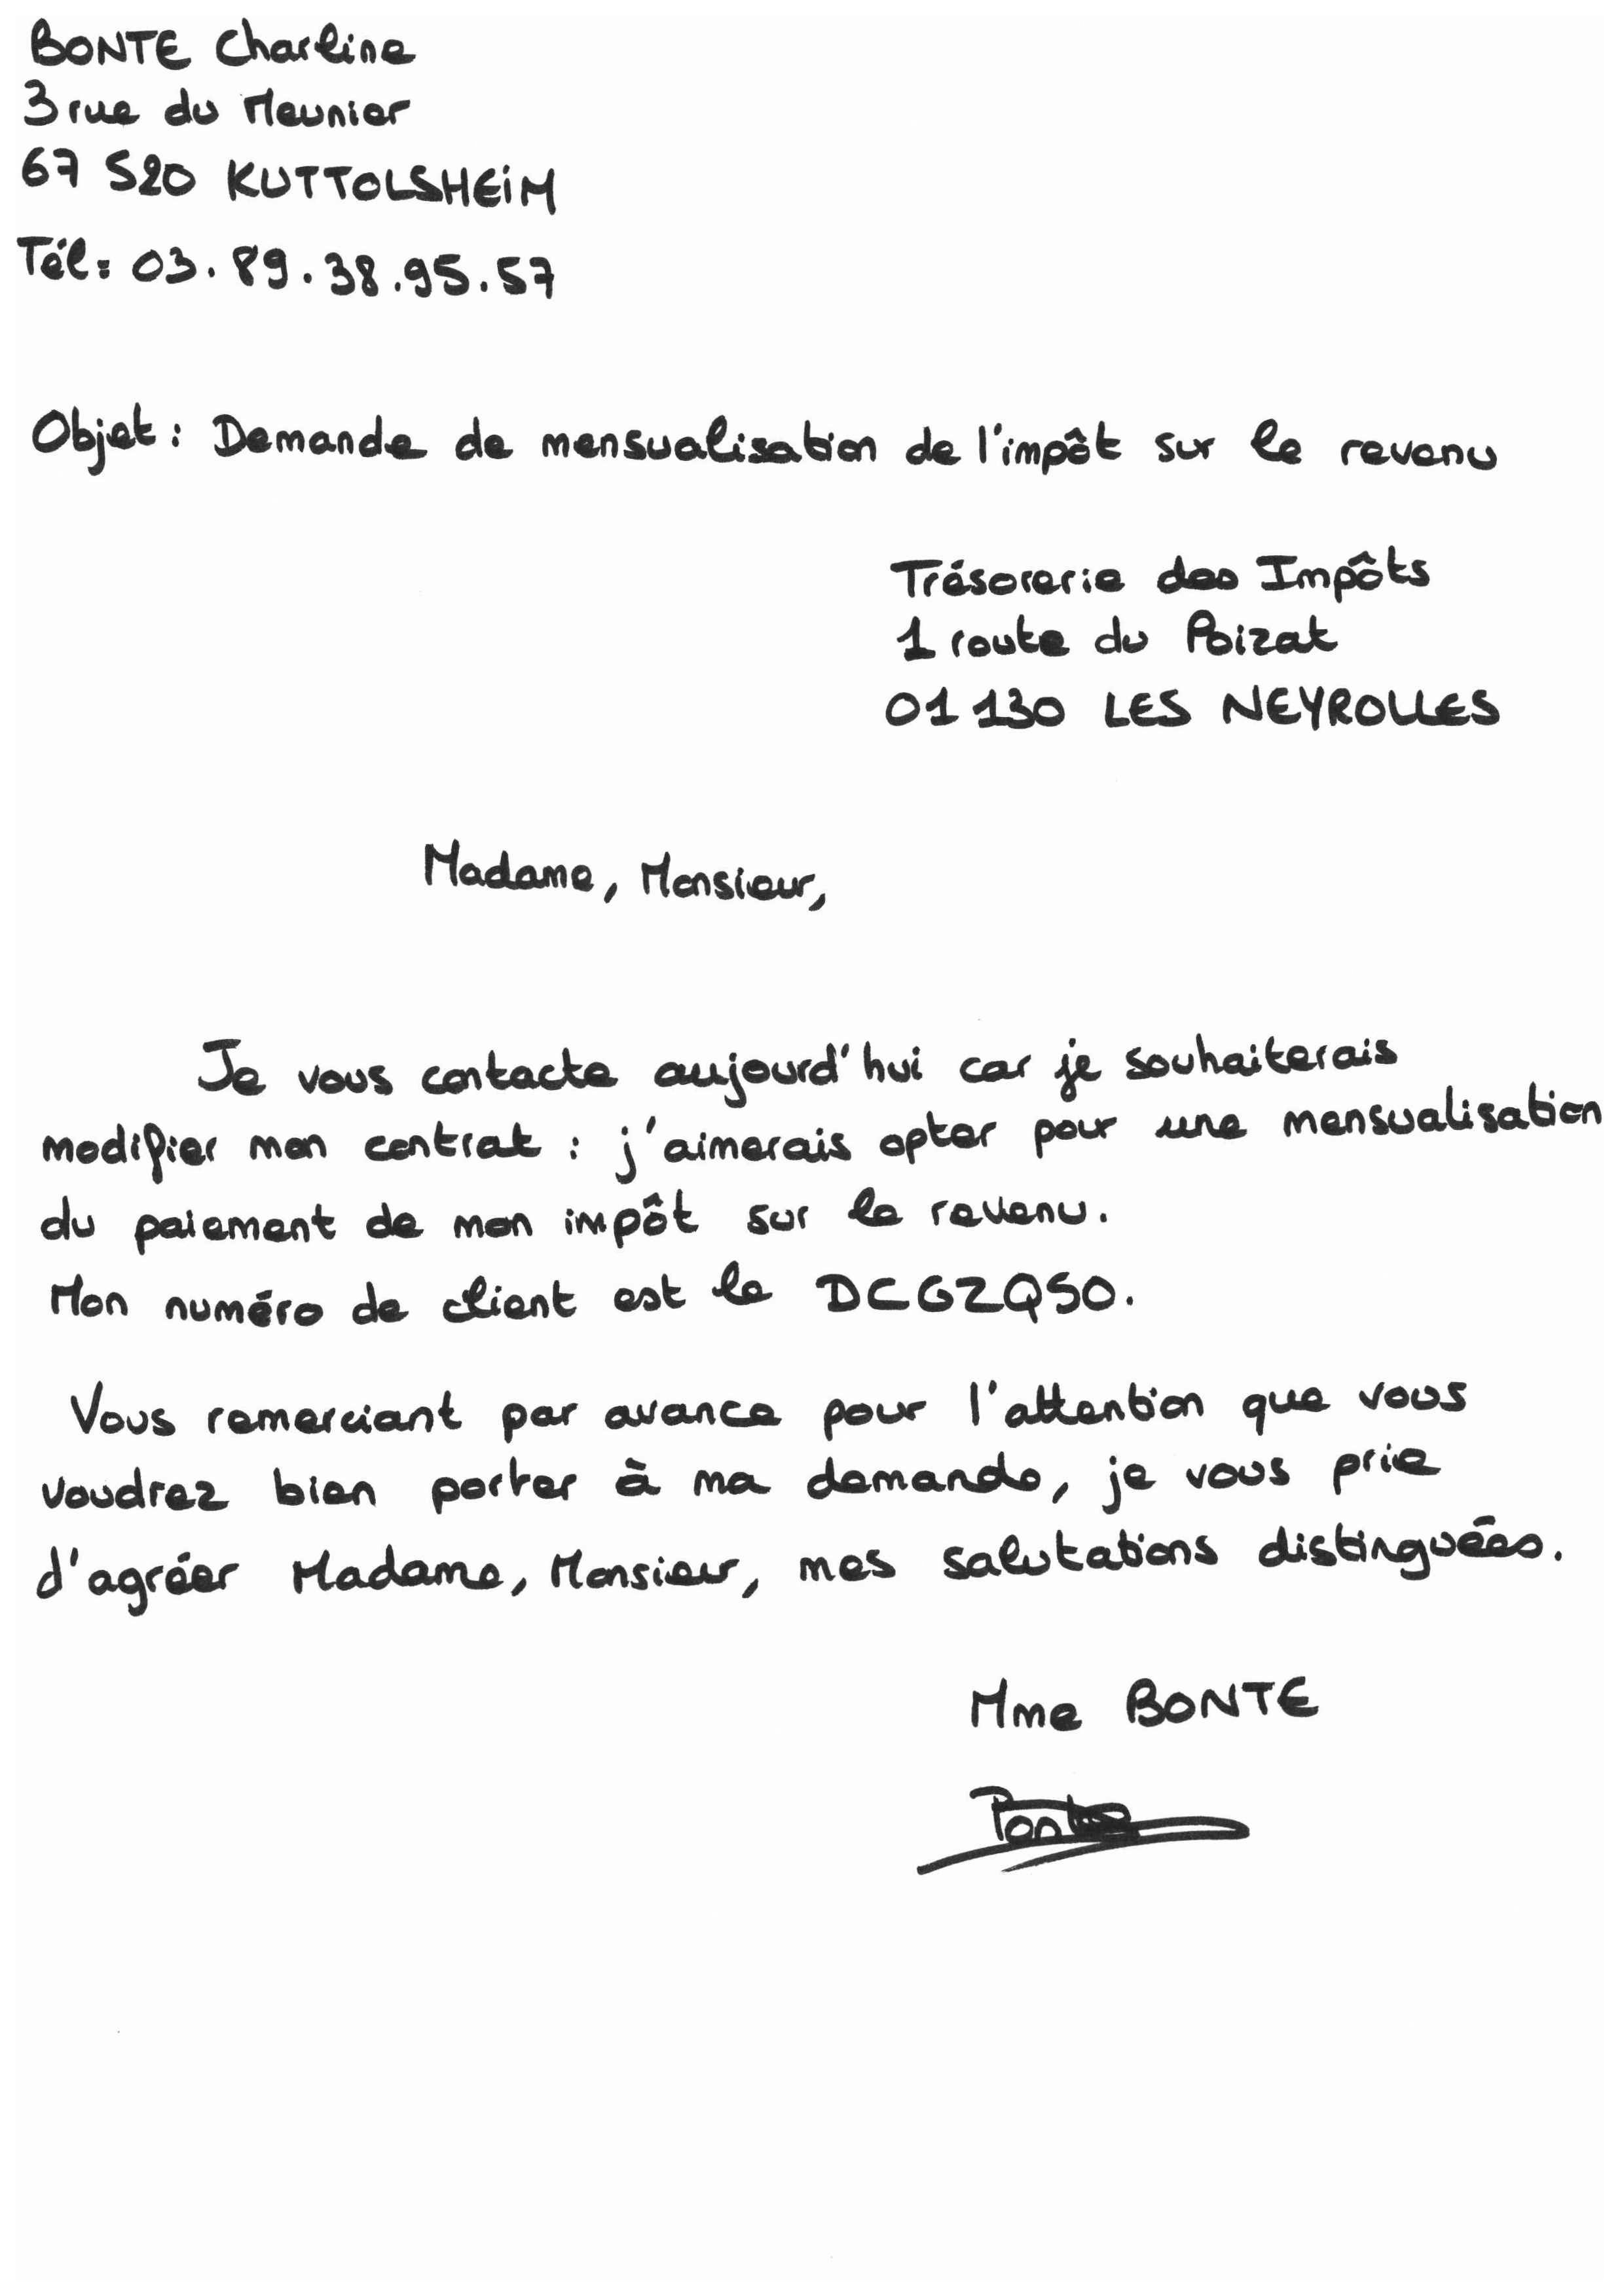 BONTE Charline
3 rue du Meunier
67 520 KUTTOLSHEiM
Tél : 03.89.38.95.57
Objet : Demande de mensualisation de l'impôt sur le revenu
Trésorerie des Impôts
1 route du Poizat
01 130 LES NEYROLLES
Madame, Monsieur,
Je vous contacte aujourd'hui car je souhaiterais
modifier mon contrat : j'aimerais opter pour une mensualisation
du paiement de mon impôt sur le revenu.
Mon numéro de client est le DCGZQ50.
Vous remerciant par avance pour l'attention que vous
voudrez bien porter à ma demande, je vous prie
d'agréer Madame, Monsieur, mes salutations distinguées.
Mme BONTE